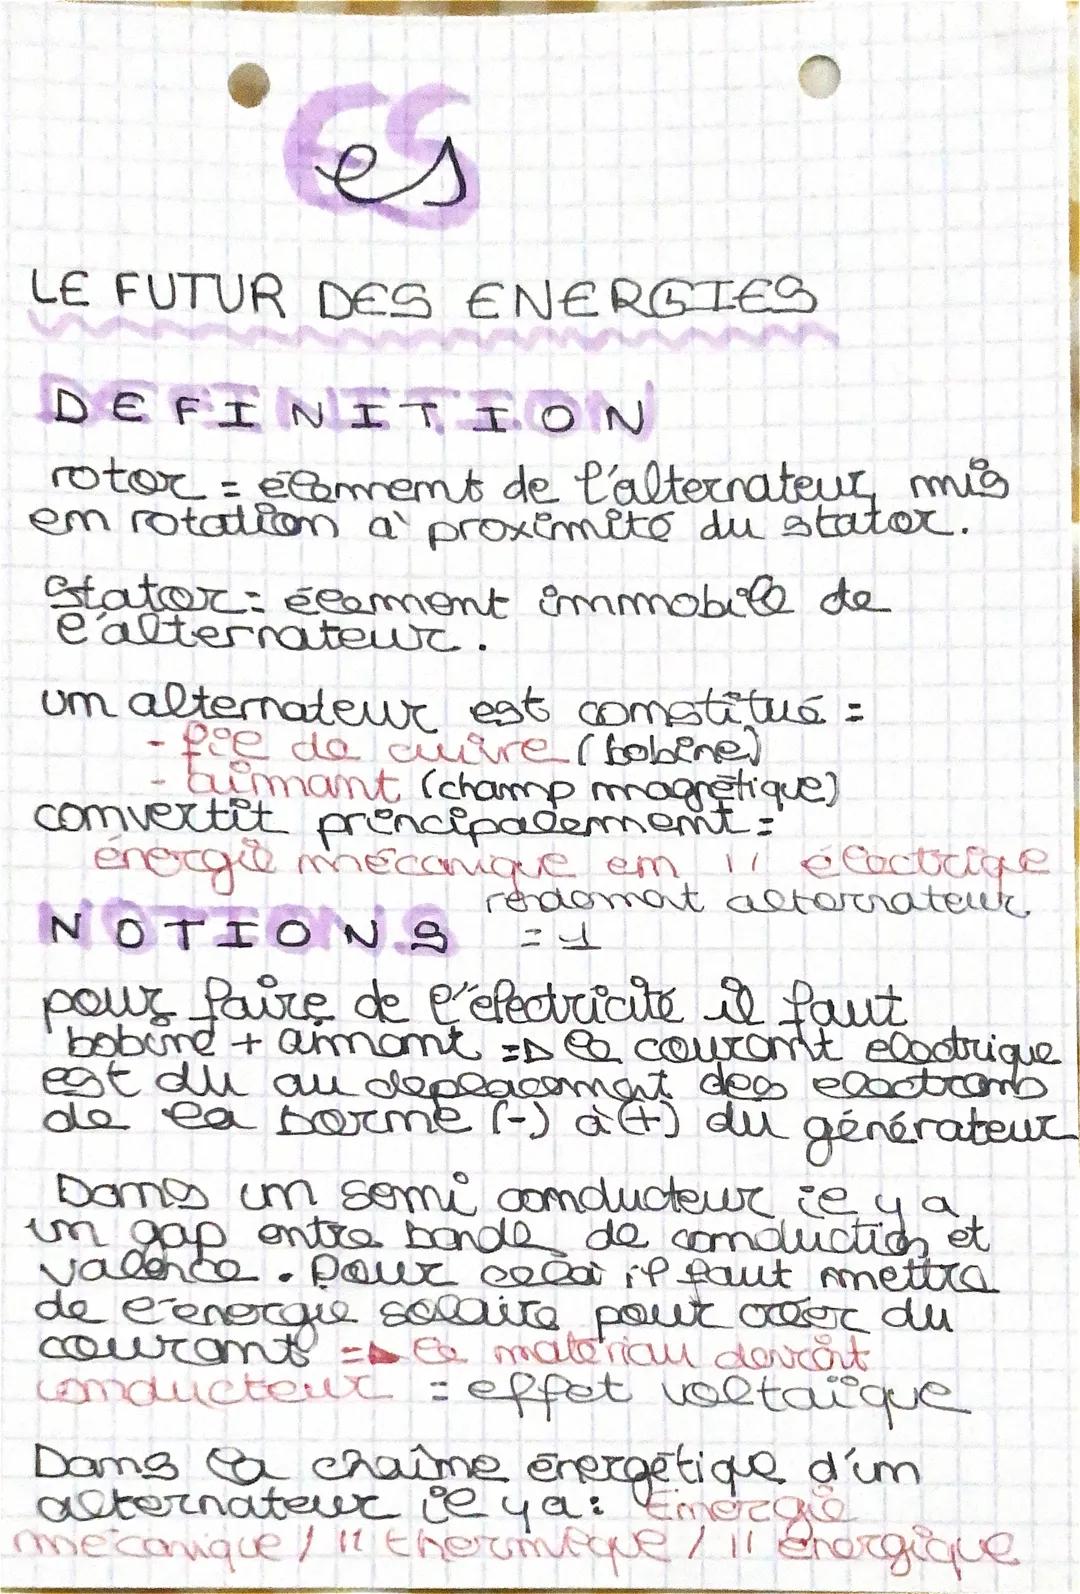 es
LE FUTUR DES ENERGIES
DEFINITION
rotor = élément de l'alternateur mis
en rotation à proximité du stator.
Stator = élément immobile de
l'alternateur.
un alternateur est constitué =
- fil de cuivre (bobine)
- aimant (champ magnétique)
convertit principalement =
énergie mécanique en 11 électrique
rendement alternateur
NOTIONS = 1
pour faire de l'électricité il faut
bobine + aimant => le courant electrique
est du au deplacement des electrons
de la borne (-) à (+) du générateur
Dans un semi conducteur il y a
un gap entre bande de conduction et
valence. Pour cela il faut mettre
de l'energie solaire pour créer du
courant => le materiau devient
conducteur = effet voltaïque
Dans la chaîne énergétique d'un
alternateur il y a : Energie
mécanique / 11 thermique / 11 énergique